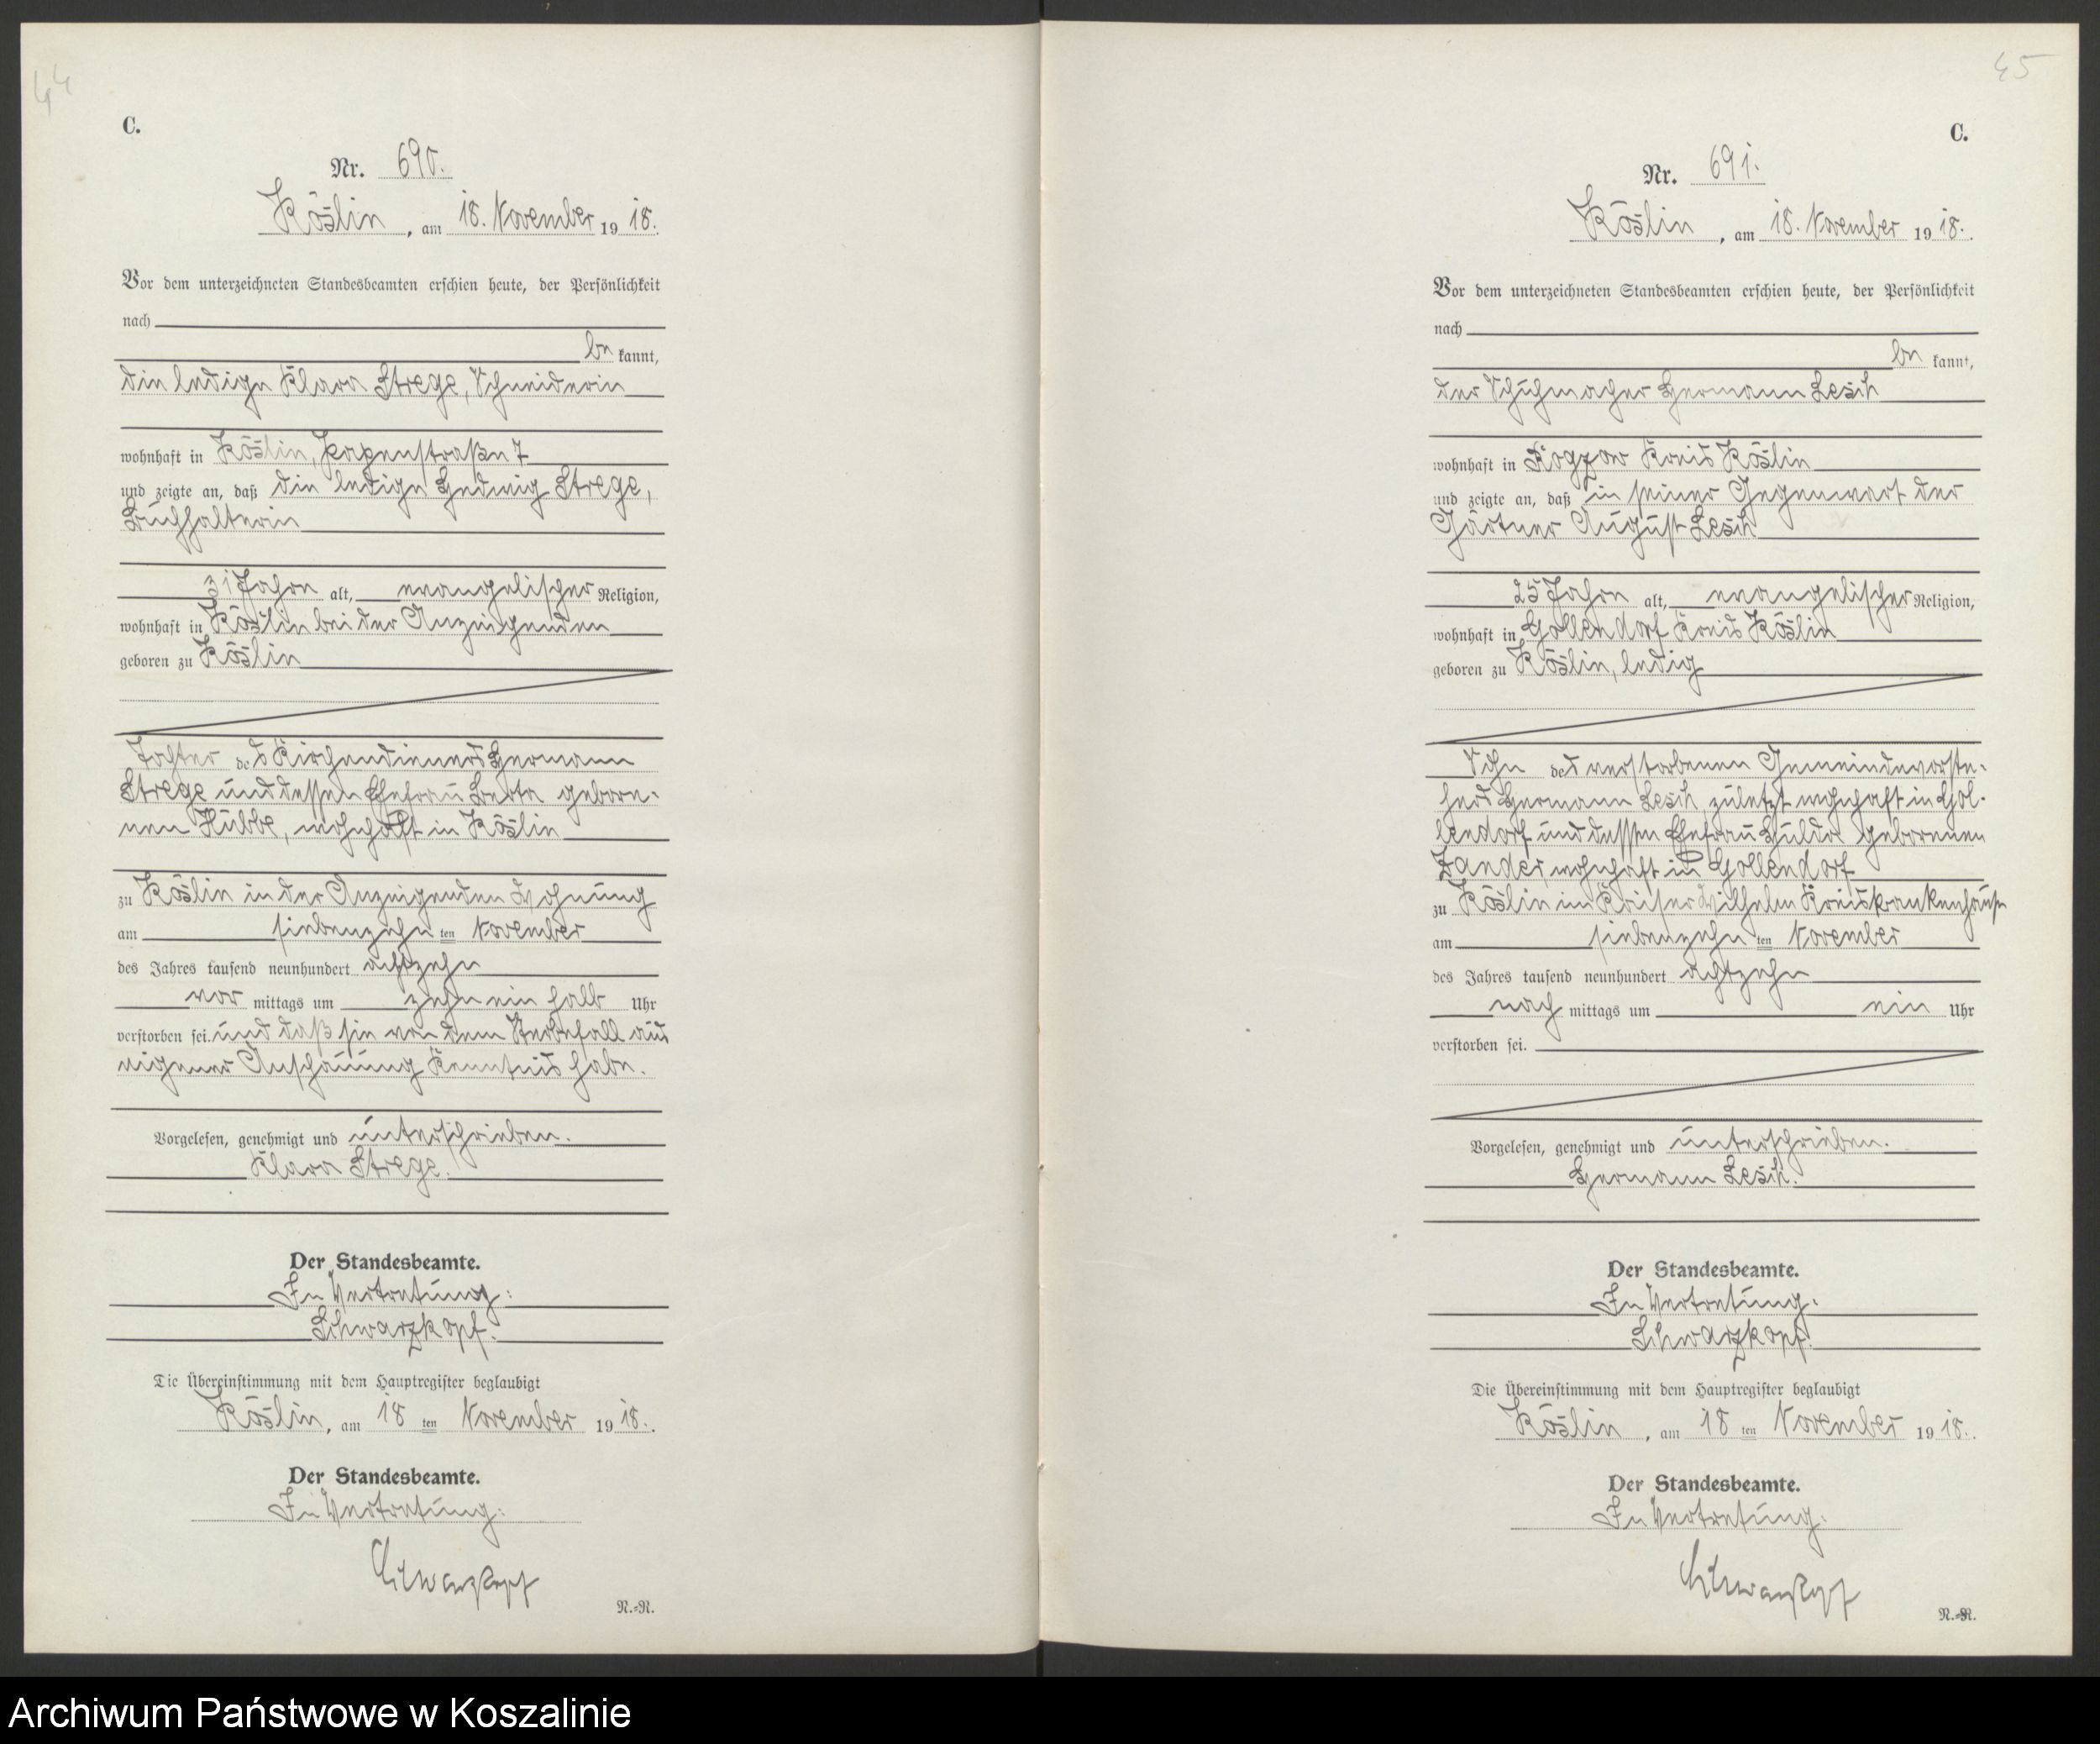 44
C.
Nr. 690.
Köslin, am 18. November 1918.
Vor dem unterzeichneten Standesbeamten erschien heute, der Persönlichkeit
nach
be kannt,
die ledige Klara Strege, Schneiderin
wohnhaft in Köslin, Papenstraße 7
und zeigte an, daß die ledige Hedwig Strege,
Buchhalterin
31 Jahre alt, evangelischer Religion,
wohnhaft in Köslin bei der Anzeigenden
geboren zu Köslin
Tochter des Kirchendieners Hermann
Strege und dessen Ehefrau Berta gebore-
nen Hübbe, wohnhaft in Köslin
zu Köslin in der Anzeigenden Wohnung
am siebenzehn ten November
des Jahres tausend neunhundert achtzehn
vor mittags um zehn ein halb Uhr
verstorben sei. und daß sie von dem Sterbefall aus
eigener Anschauung Kenntnis habe.
Vorgelesen, genehmigt und unterschrieben.
Klara Strege.
Der Standesbeamte.
In Vertretung:
Schwarzkopf.
Die Übereinstimmung mit dem Hauptregister beglaubigt
Köslin, am 18 ten November 1918.
Der Standesbeamte.
In Vertretung:
Schwarzkopf
N.-R.
45
C.
Nr. 691.
Köslin, am 18. November 1918.
Vor dem unterzeichneten Standesbeamten erschien heute, der Persönlichkeit
nach
be kannt,
der Schuhmacher Hermann Lesch
wohnhaft in Rogzow Kreis Köslin
und zeigte an, daß in seiner Gegenwart der
Gärtner August Lesch
25 Jahre alt, evangelischer Religion,
wohnhaft in Gollendorf Kreis Köslin
geboren zu Köslin, ledig
Sohn des verstorbenen Gemeindevorste-
hers Hermann Lesch zuletzt wohnhaft in Gol-
lendorf und dessen Ehefrau Hulda geborenen
Zander, wohnhaft in Gollendorf
zu Köslin im Kaiser Wilhelm Kreiskrankenhause
am siebenzehn ten November
des Jahres tausend neunhundert achtzehn
nach mittags um ein Uhr
verstorben sei.
Vorgelesen, genehmigt und unterschrieben.
Hermann Lesch.
Der Standesbeamte.
In Vertretung:
Schwarzkopf.
Die Übereinstimmung mit dem Hauptregister beglaubigt
Köslin, am 18 ten November 1918.
Der Standesbeamte.
In Vertretung:
Schwarzkopf
N.-R.
Archiwum Państwowe w Koszalinie